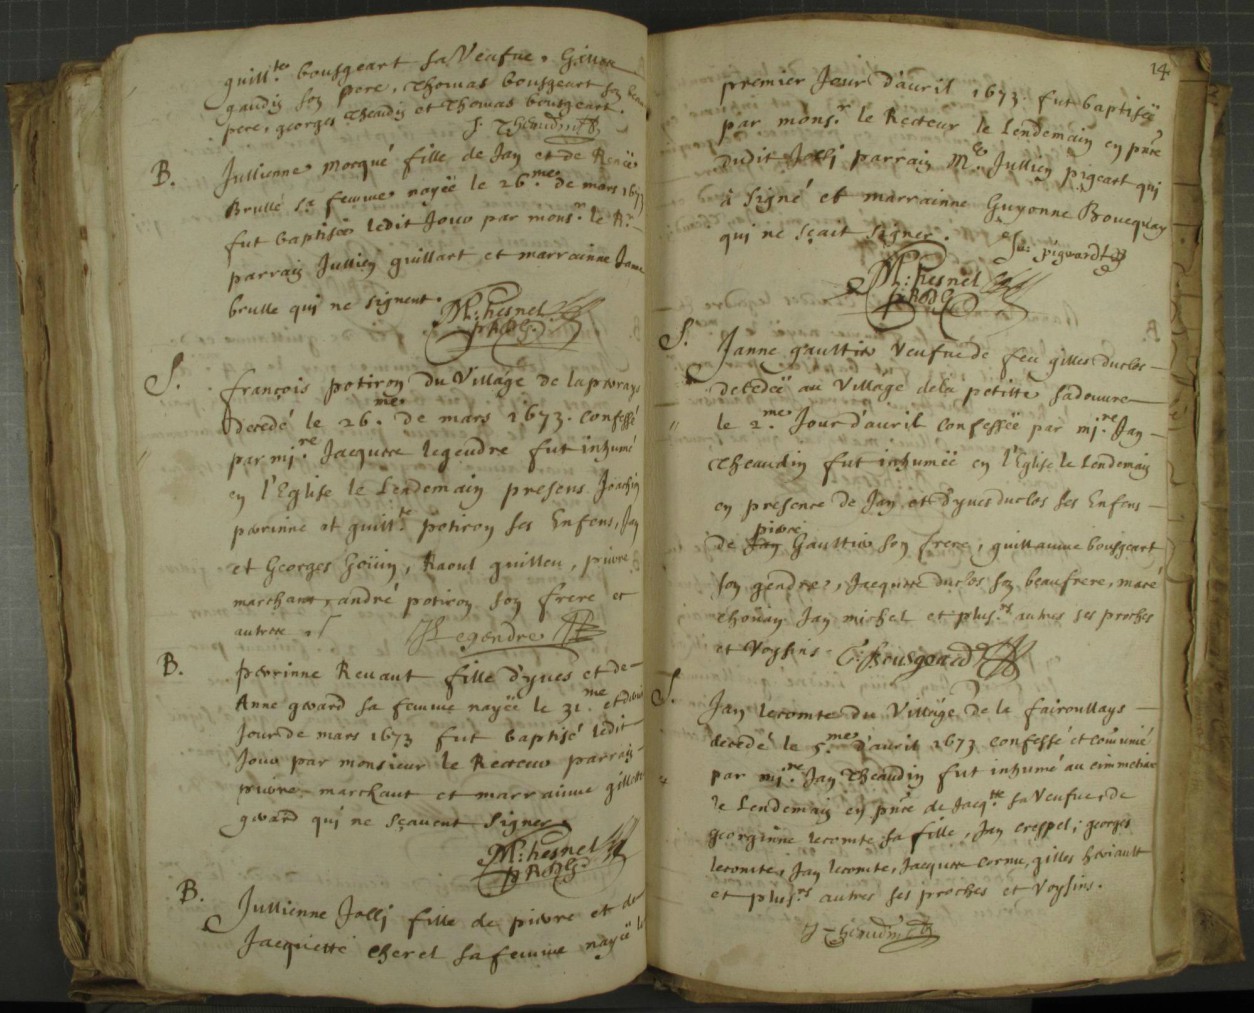 guill.te bousgeart sa Veufue, Gilles
gaudin son pere, Thomas bousgeart son beau
pere, georges Theaudin et Thomas bousgeart.
J. Theaudin
B.
Jullienne Morqué fille de Jan et de Renée
Brulle sa femme nayëe le 26.me de mars 1673
fut baptisée ledit Jour par mons.r le R.r
parrain Jullien guillart et marrainne Janne
brulle qui ne signent.
M: hesnel
p Rect
S.
françois potiron du Village de la
decedé le 26.me de mars 1673. confessé
par mi.re Jacques legendre fut inhumé
en l'Eglise le Lendemain presens Joachin
perrinne et guill.te potiron ses Enfens, Jan
et Georges Goüin, Raoul guillou, pierre
marchant, andré potiron son frere et
autres.
J Legendre
B.
perrinne Reuaut fille d'yues et de
Anne gicard sa femme nayëe le 31.me et dernier
Jour de mars 1673 fut baptisé ledit
Jour par monsieur le Recteur parrain
pierre marchaut et marrainne gillette
gicard qui ne sçauent signer
M: hesnel
p Rect
B.
Jullienne Jolli fille de pierre et de
Jacquette cheret sa femme nayëe le
14
premier Jour d'auril 1673. fut baptisëe
par mons.r le Recteur le Lendemain en pnce
dudit Jolli parrain M.e Jullien pigeart qui
à signé et marrainne Guyonne Boucquay
qui ne sçait signer.
Ju: pigeard
M: hesnel
p Rect
S.
Janne gaultier Veufue de feu gilles duclos
decedëe au Village de la petitte
le 2.me Jour d'auril confessëe par mi.re Jan
Theaudin fut inhumëe en l'Eglise le Lendemain
en presence de Jan et d'yues duclos ses Enfens
pierre
de Jan Gaultier son frere, guillaume bousgeart
son gendre, Jacques duclos son beaufrere, macé
Jan michel et plus.rs autres ses proches
et Voysins. G: Bousgeard
S.
Jan lecomte du Village de la fairoullays
decedé le 5.me d'auril 1673 confessé et comunié
par mi.re Jan Theaudin fut inhumé au cimmetiere
le Lendemain en pnce de Jacq.tte sa Veufue, de
georginne lecomte sa fille, Jan crespel, georges
lecomte, Jan lecomte, Jacques cornu, gilles heriault
et plus.rs autres ses proches et Voysins.
J Theaudin